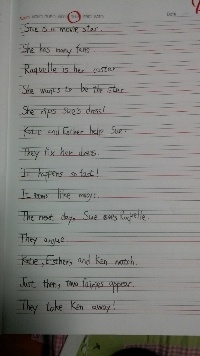 She is a movie star.
She has many fans.
Raquelle is her costar.
She wants to be the star.
She rips Sue's dress!
Katie and Esther help Sue.
They fix her dress.
It happens so fast!
It like magic.
The next day, Sue Raquelle.
They argue.
Katie, Esther, and Ken watch.
Just then, two fairies appear.
They take Ken away!